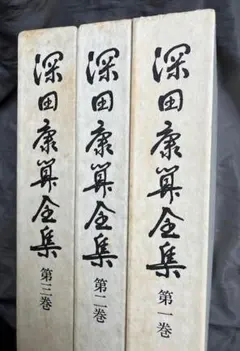 深田康算全集 第一巻
深田康算全集 第二巻
深田康算全集 第三巻